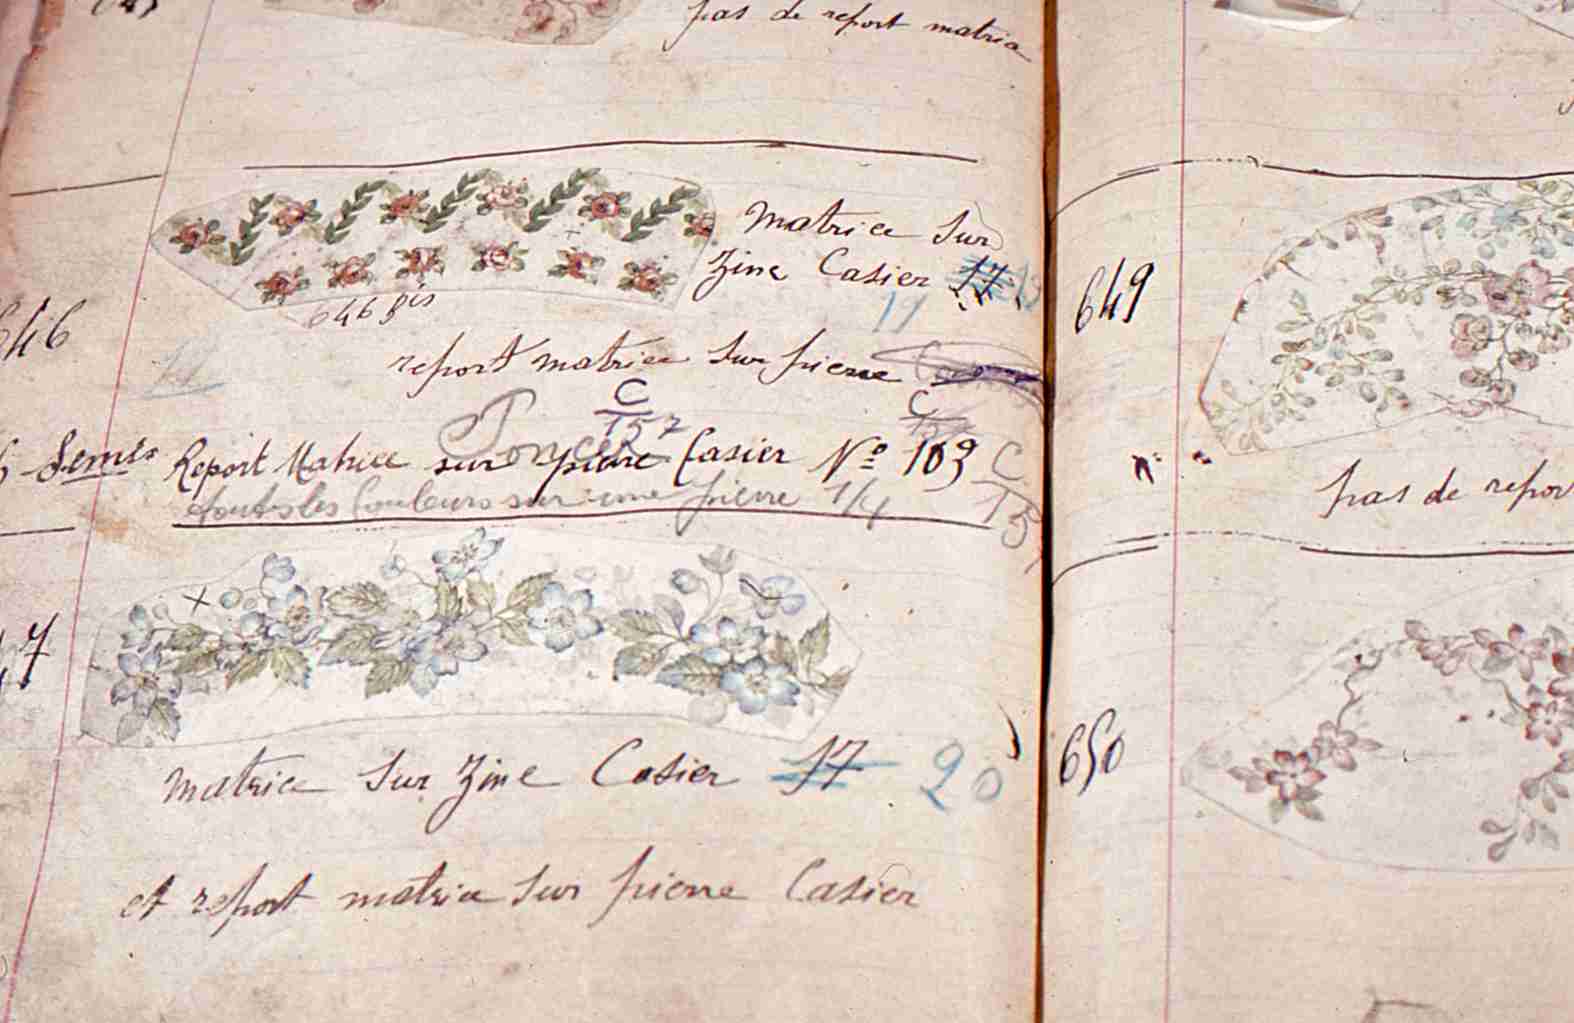 pas de report matrice
646
matrice sur
Zinc Casier 17
19
646 Bis
report matrice sur pierre
C
157
Poncer
Semis Report Matrice sur pierre Casier No 109
C
15
toutes les couleurs sur une pierre 1/4
47
matrice sur Zinc Casier 17 20
et report matrice sur pierre Casier
649
pas de repor
650